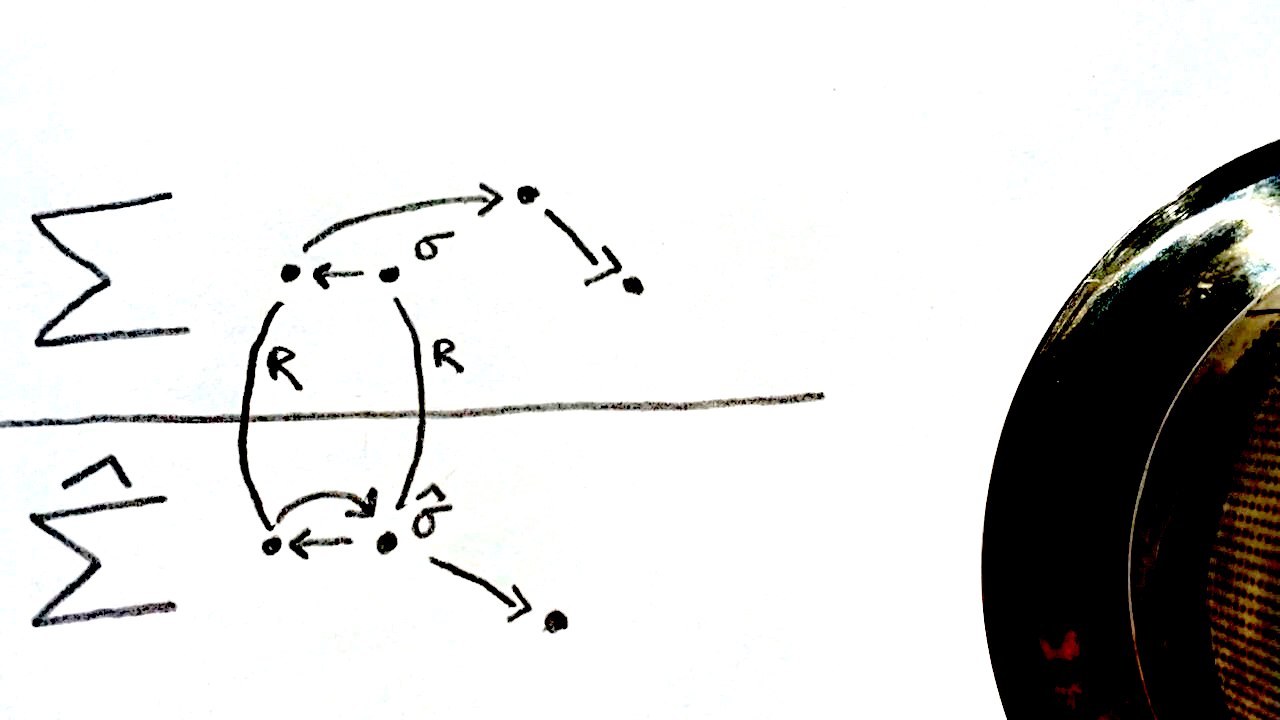 Σ
σ
R R
Σ̂
σ̂